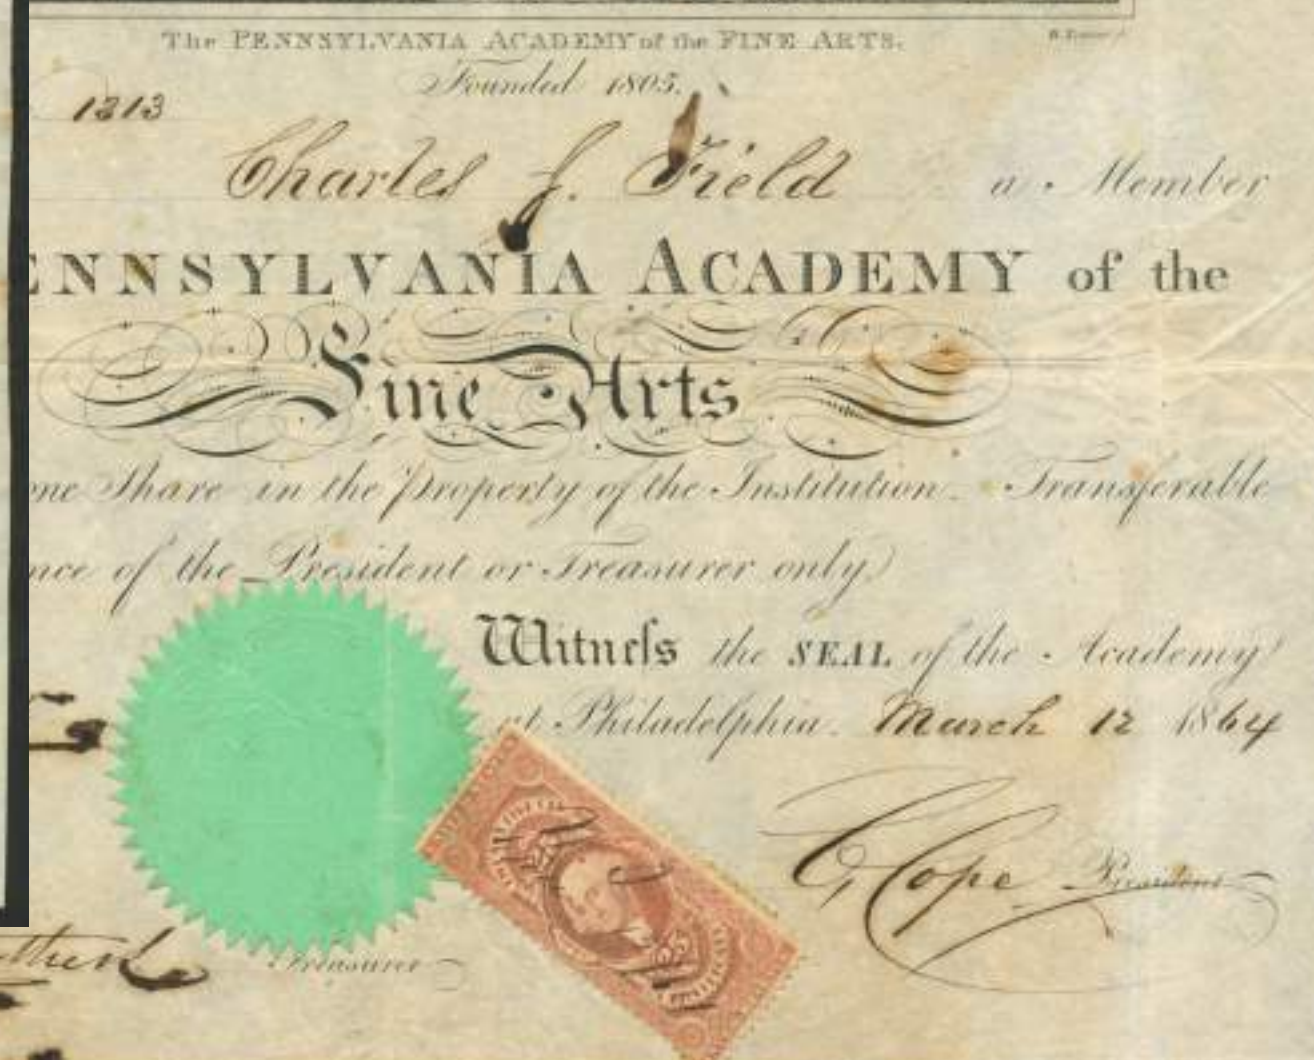 The PENNSYLVANIA ACADEMY of the FINE ARTS.
Founded 1805.
1313
Charles J. Field a Member
ENNSYLVANIA ACADEMY of the
Fine Arts
one Share in the Property of the Institution. Transferable
nce of the President or Treasurer only)
Witneſs the SEAL of the Academy
at Philadelphia. March 12 1864
C Cope President
Treasurer
25